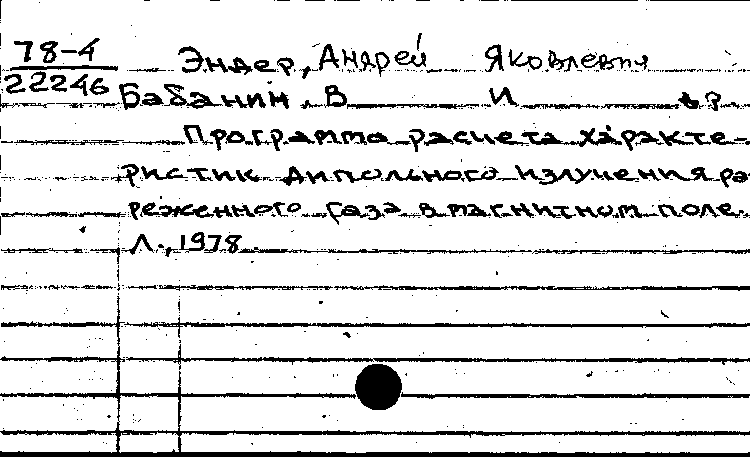 78-4
22246
Эндер, Андрей Яковлевич
Бабанин, В И др.
Программа расчета характе-
ристик дипольного излучения ра
реженного газа в магнитном поле.
Л., 1978